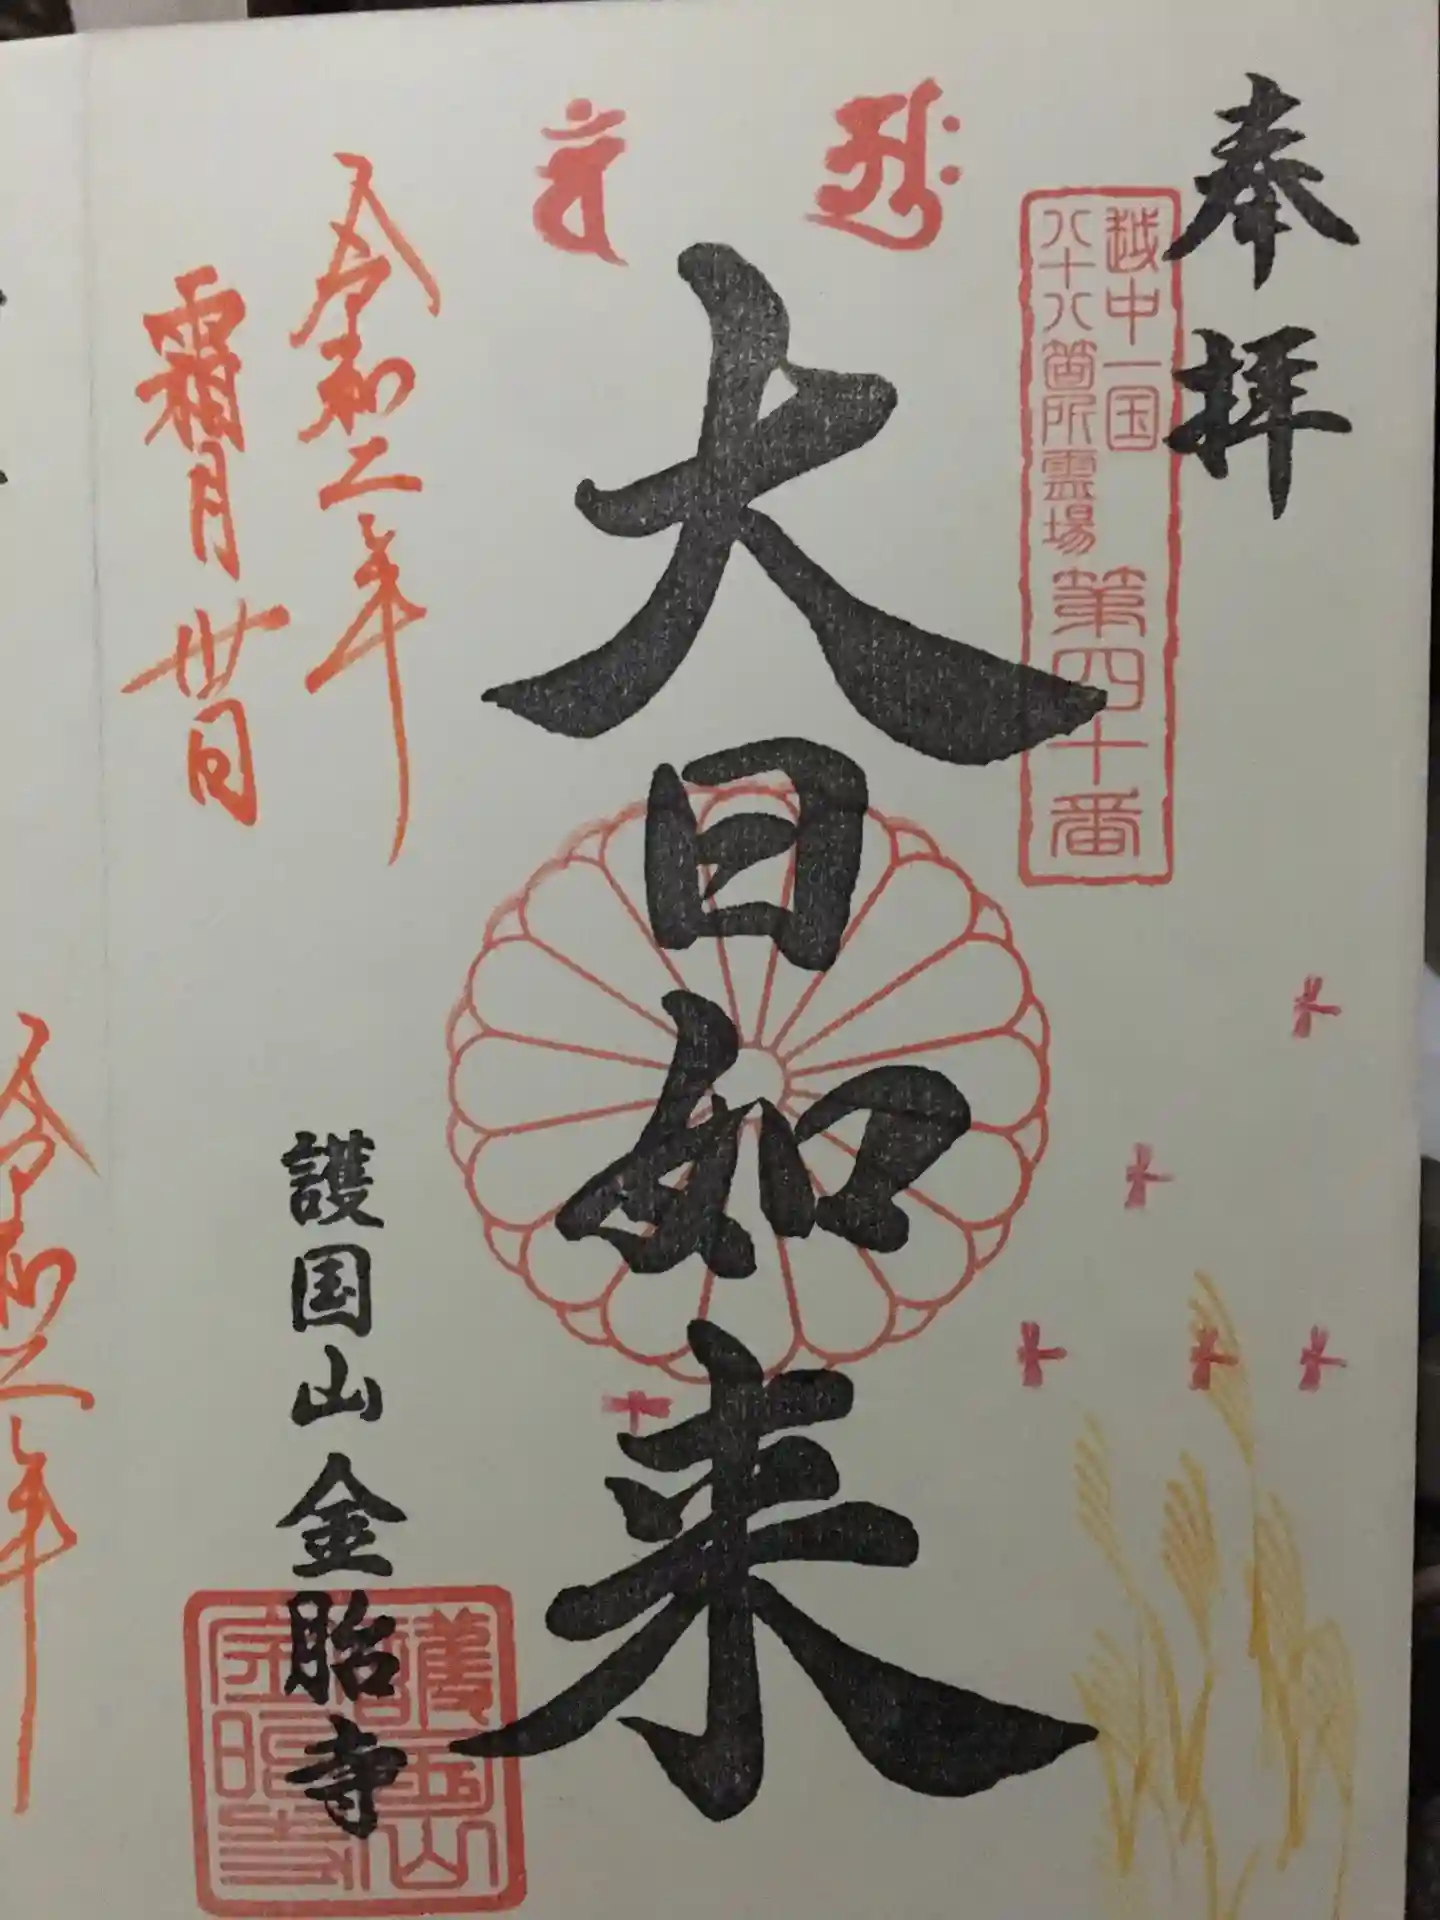 奉拝
越中一国
八十八箇所霊場
第四十番
大日如来
令和二年
霜月廿日
護国山金胎寺
護国山
金胎寺
令和二年